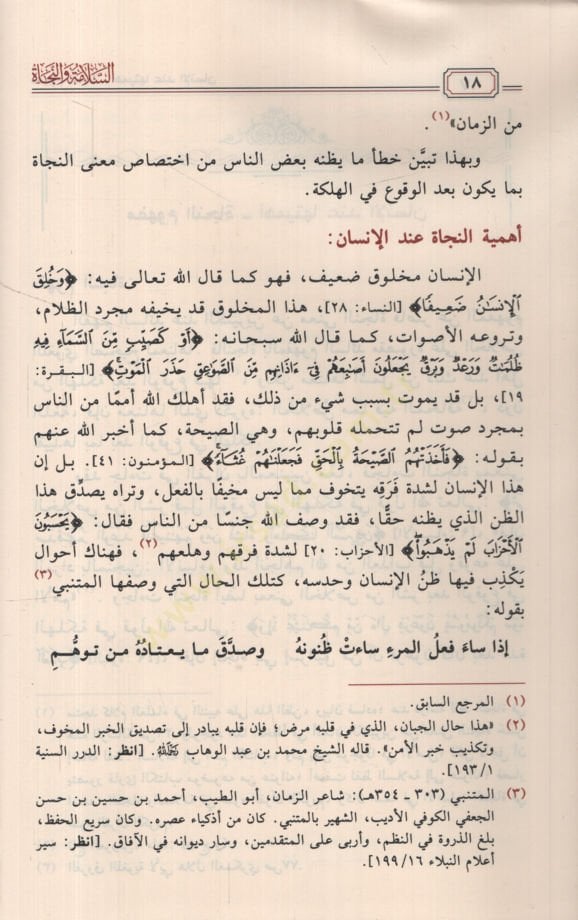 السلامة والنجاة
١٨
من الزمان»(١).
وبهذا تبيَّن خطأ ما يظنه بعض الناس من اختصاص معنى النجاة
بما يكون بعد الوقوع في الهلكة.
أهمية النجاة عند الإنسان:
الإنسان مخلوق ضعيف، فهو كما قال الله تعالى فيه: ﴿وَخُلِقَ
ٱلْإِنسَٰنُ ضَعِيفًا﴾ [النساء: ٢٨]، هذا المخلوق قد يخيفه مجرد الظلام،
وتروعه الأصوات، كما قال الله سبحانه: ﴿أَوْ كَصَيِّبٍ مِّنَ ٱلسَّمَآءِ فِيهِ
ظُلُمَٰتٌ وَرَعْدٌ وَبَرْقٌ يَجْعَلُونَ أَصَٰبِعَهُمْ فِىٓ ءَاذَانِهِم مِّنَ ٱلصَّوَٰعِقِ حَذَرَ ٱلْمَوْتِ﴾ [البقرة:
١٩]، بل قد يموت بسبب شيء من ذلك، فقد أهلك الله أممًا من الناس
بمجرد صوت لم تتحمله قلوبهم، وهي الصيحة، كما أخبر الله عنهم
بقوله: ﴿فَأَخَذَتْهُمُ ٱلصَّيْحَةُ بِٱلْحَقِّ فَجَعَلْنَٰهُمْ غُثَآءً﴾ [المؤمنون: ٤١]. بل إن
هذا الإنسان لشدة فَرَقِه يتخوف مما ليس مخيفًا بالفعل، وتراه يصدِّق هذا
الظن الذي يظنه حقًّا، فقد وصف الله جنسًا من الناس فقال: ﴿يَحْسَبُونَ
ٱلْأَحْزَابَ لَمْ يَذْهَبُوا۟﴾ [الأحزاب: ٢٠] لشدة فرقهم وهلعهم(٢)، فهناك أحوال
يَكْذِب فيها ظنُ الإنسان وحدسه، كتلك الحال التي وصفها المتنبي(٣)
بقوله:
إذا ساءَ فعلُ المرءِ ساءتْ ظُنونُهُ وصدَّقَ ما يعتادُهُ من توهُّمِ
(١) المرجع السابق.
(٢) «هذا حال الجبان، الذي في قلبه مرض؛ فإن قلبه يبادر إلى تصديق الخبر المخوف،
وتكذيب خبر الأمن». قاله الشيخ محمد بن عبد الوهاب رحمه الله. [انظر: الدرر السنية
١/١٩٣].
(٣) المتنبي (٣٠٣ ـ ٣٥٤هـ): شاعر الزمان، أبو الطيب، أحمد بن حسين بن حسن
الجعفي الكوفي الأديب، الشهير بالمتنبي. كان من أذكياء عصره. وكان سريع الحفظ،
بلغ الذروة في النظم، وأربى على المتقدمين، وسار ديوانه في الآفاق. [انظر: سير
أعلام النبلاء ١٦/١٩٩].